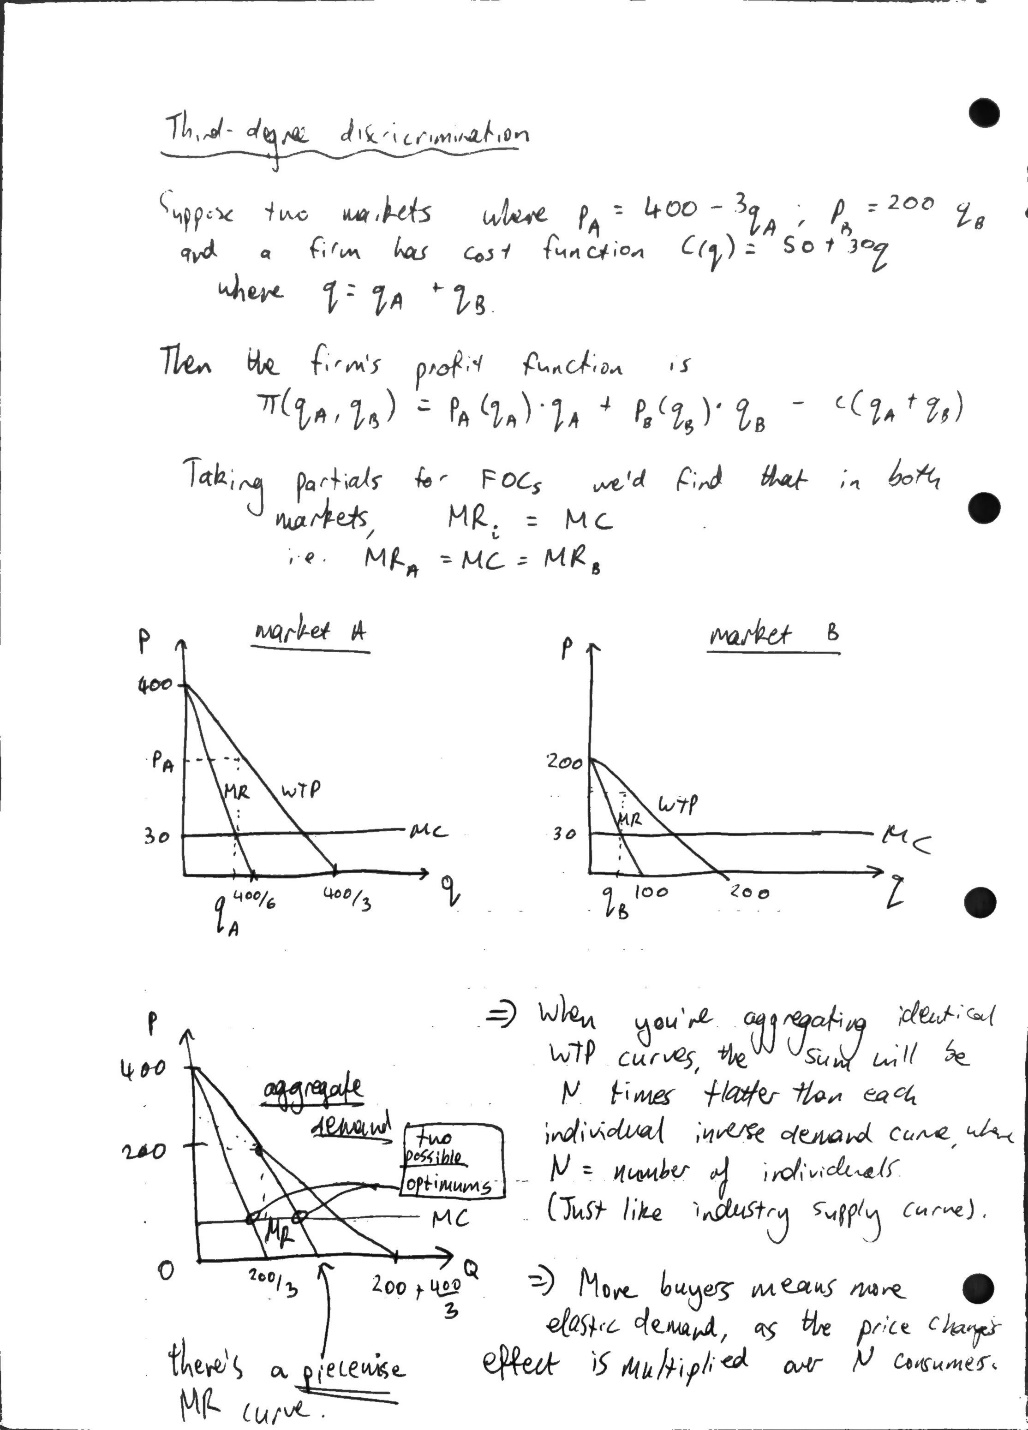 Third-degree discricrimination
Suppose two markets where P_A = 400 - 3q_A ; P_B = 200 q_B
and a firm has cost function C(q) = 50 + 30q
where q = q_A + q_B.
Then the firm's profit function is
π(q_A, q_B) = P_A(q_A)·q_A + P_B(q_B)·q_B - c(q_A + q_B)
Taking partials for FOCs we'd find that in both
markets, MR_i = MC
i.e. MR_A = MC = MR_B
market A
P
400
P_A
30
MR
WTP
MC
q_A
400/6
400/3
q
market B
P
200
30
MR
WTP
MC
q_B
100
200
q
P
400
200
0
aggregate
demand
two
possible
optimums
MC
MR
200/3
200 + 400/3
Q
there's a piecewise
MR curve.
⇒ When you're aggregating identical
WTP curves, the sum will be
N times flatter than each
individual inverse demand curve, where
N = number of individuals.
(Just like industry supply curve).
⇒ More buyers means more
elastic demand, as the price change's
effect is multiplied over N consumers.